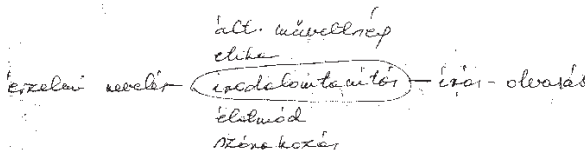 ált. műveltség
etika
érzelmi nevelés - irodalomtanítás - írás-olvasás
életmód
szórakozás